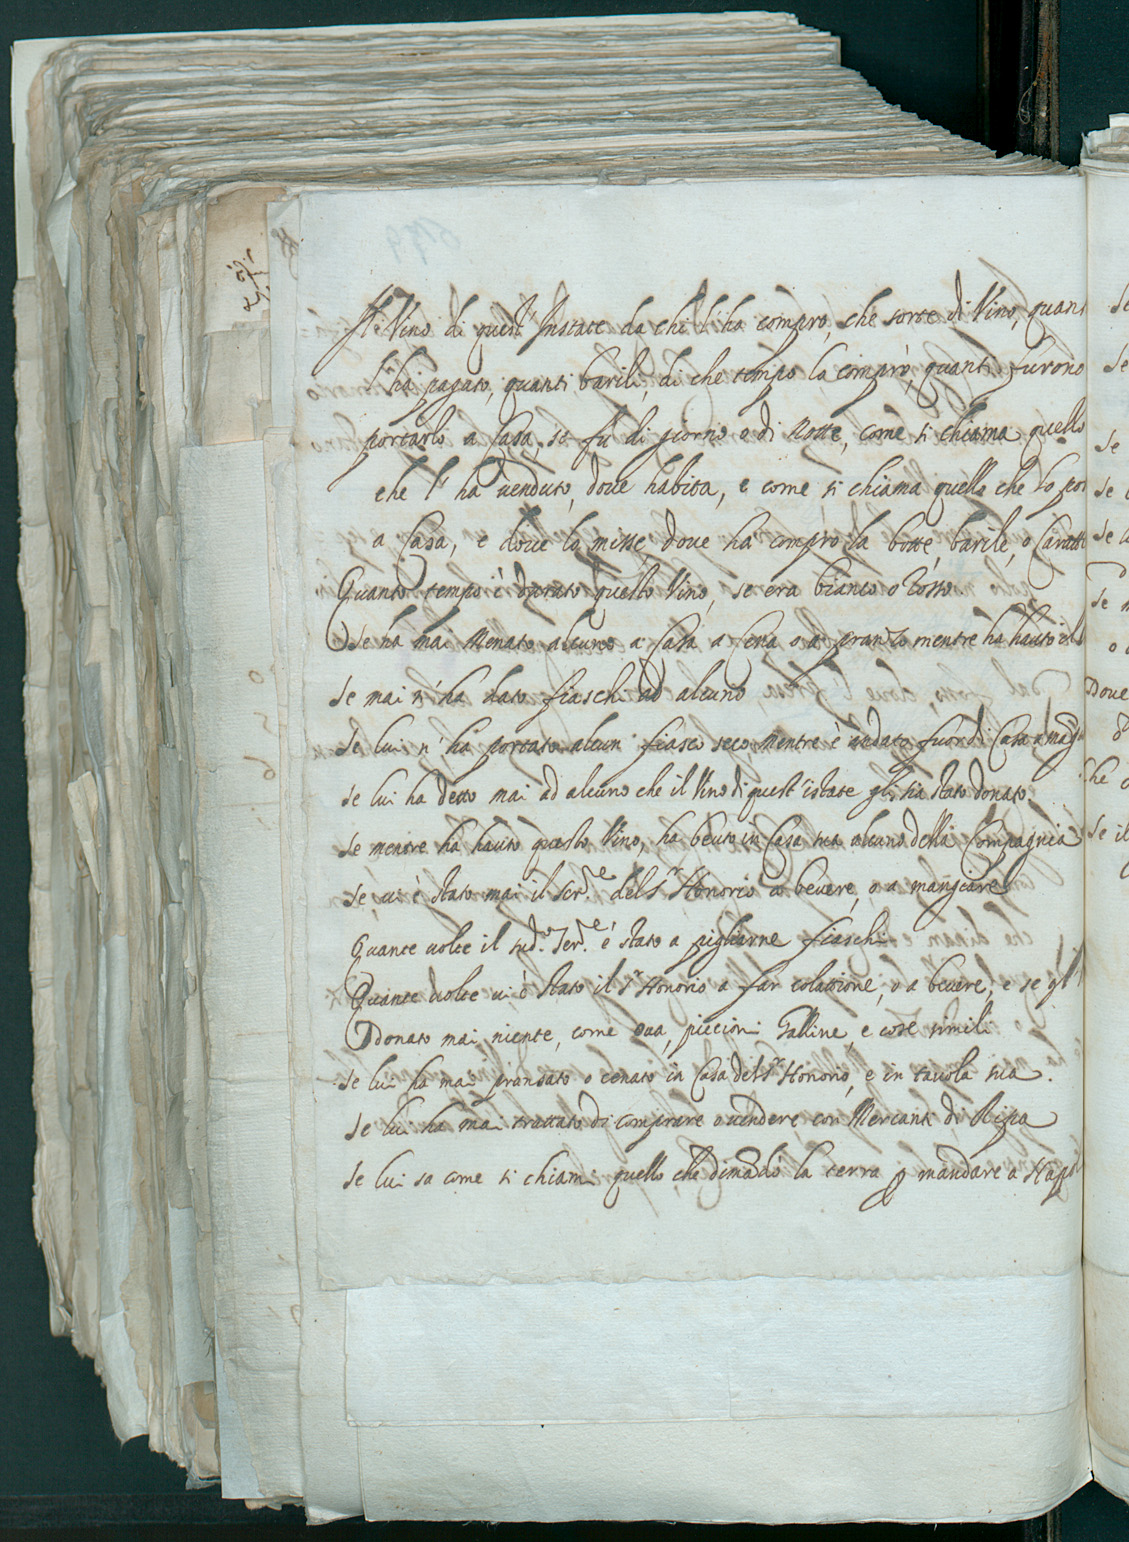 Il Vino di quest' Instate da chi l'ha compro, che sorte di Vino, quant
l'ha pagato, quanti barili, di che tempo lo comprò, quanti furono
portarlo a Casa, se fu di giorno o di notte, come si chiama quello
che l'ha venduto, dove habita, e come si chiama quello che lo por
a Casa, e dove lo misse, dove ha compro la botte, barile, o Carat
Quanto tempo è durato quello Vino, se era bianco o Rosso
Se ha mai Menato alcuno a Casa a Cena o a pranzo mentre ha hauto il
Se mai n' ha dato fiaschi ad alcuno
Se lui n' ha portato alcun fiasco seco, mentre è andato fuor di Casa a mag
Se lui ha detto mai ad alcuno che il Vino di quest' istate gli sia stato donato.
Se mentre ha hauto questo Vino, ha beuto in Casa sua alcuno della Compagnia
Se vi è stato mai il Ser.re del S.r Honorio a bevere, o a mangiare
Quante volte il sud.o Ser.re è stato a pigliarne fiaschi
Quante volte vi è stato il S.r Honorio a far colatione, o a bevere, e se gl'
Donato mai niente, come ova, piccioni Galline, e cose simili
Se lui ha mai pransato o cenato in Casa del S.r Honorio, e in tavola sua.
Se lui ha mai trattato di comprare o vendere con Mercanti di Ripa
Se lui sa come si chiami quello che dimādò la terra p mandare a Nap
Se
Se
Se
Se
Se
Se
o
Dove
Che
Se il